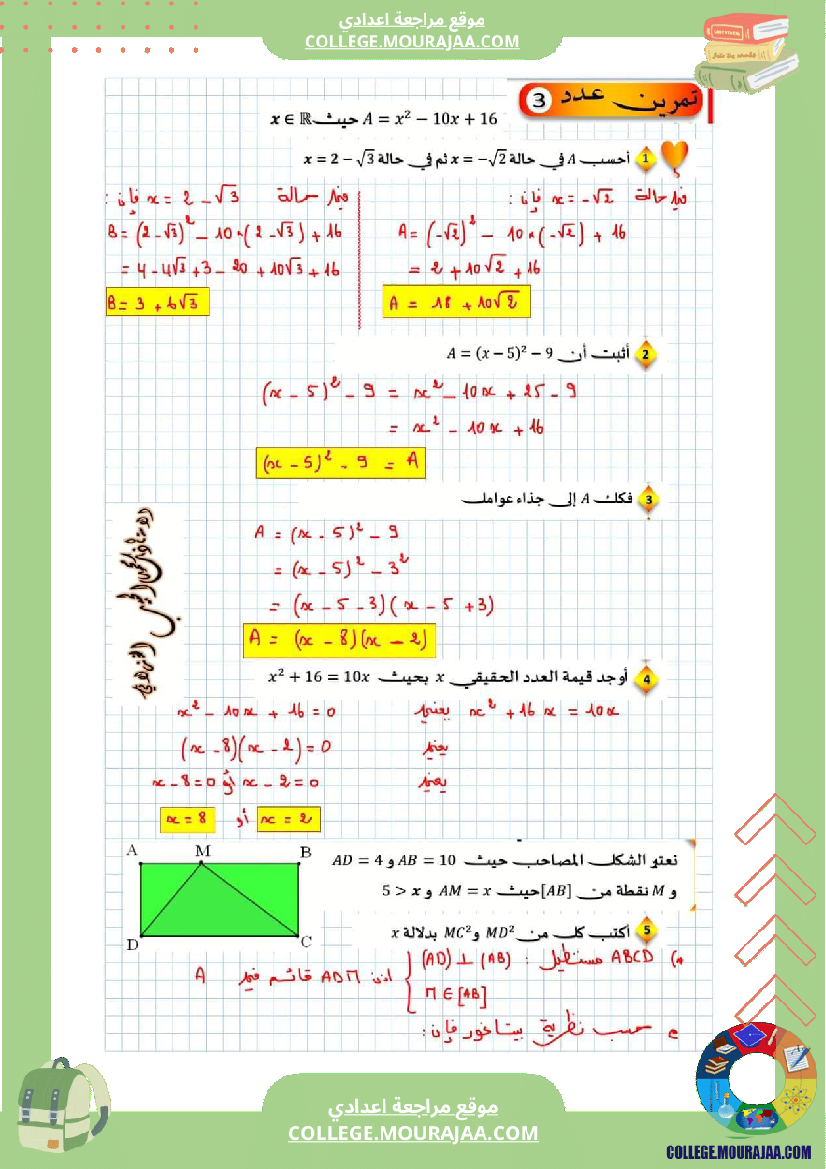 موقع مراجعة اعدادي
COLLEGE.MOURAJAA.COM
تمرين عدد 3
A = x² − 10x + 16 حيث x ∈ ℝ
1 أحسب A في حالة x = −√2 ثم في حالة x = 2 − √3
في حالة x = −√2 فإن :
A = (−√2)² − 10×(−√2) + 16
= 2 + 10√2 + 16
A = 18 + 10√2
في حالة x = 2 − √3 فإن :
B = (2−√3)² − 10×(2−√3) + 16
= 4 − 4√3 + 3 − 20 + 10√3 + 16
B = 3 + 6√3
2 أثبت أن A = (x − 5)² − 9
(x − 5)² − 9 = x² − 10x + 25 − 9
= x² − 10x + 16
(x − 5)² − 9 = A
3 فكك A إلى جذاء عوامل
A = (x − 5)² − 9
= (x − 5)² − 3²
= (x − 5 − 3)(x − 5 + 3)
A = (x − 8)(x − 2)
4 أوجد قيمة العدد الحقيقي x بحيث x² + 16 = 10x
x² + 16 x = 10x يعني x² − 10x + 16 = 0
يعني (x − 8)(x − 2) = 0
يعني x − 8 = 0 أو x − 2 = 0
x = 8 أو x = 2
A M B
D C
نعتبر الشكل المصاحب حيث AB = 10 و AD = 4
و M نقطة من [AB] حيث AM = x و 5 > x
5 أكتب كل من MD² و MC² بدلالة x
ABCD مستطيل : (AD) ⊥ (AB)
M ∈ [AB]
اذن ADM قائم في A
حسب نظرية بيتاغور فإن :
موقع مراجعة اعدادي
COLLEGE.MOURAJAA.COM
COLLEGE.MOURAJAA.COM